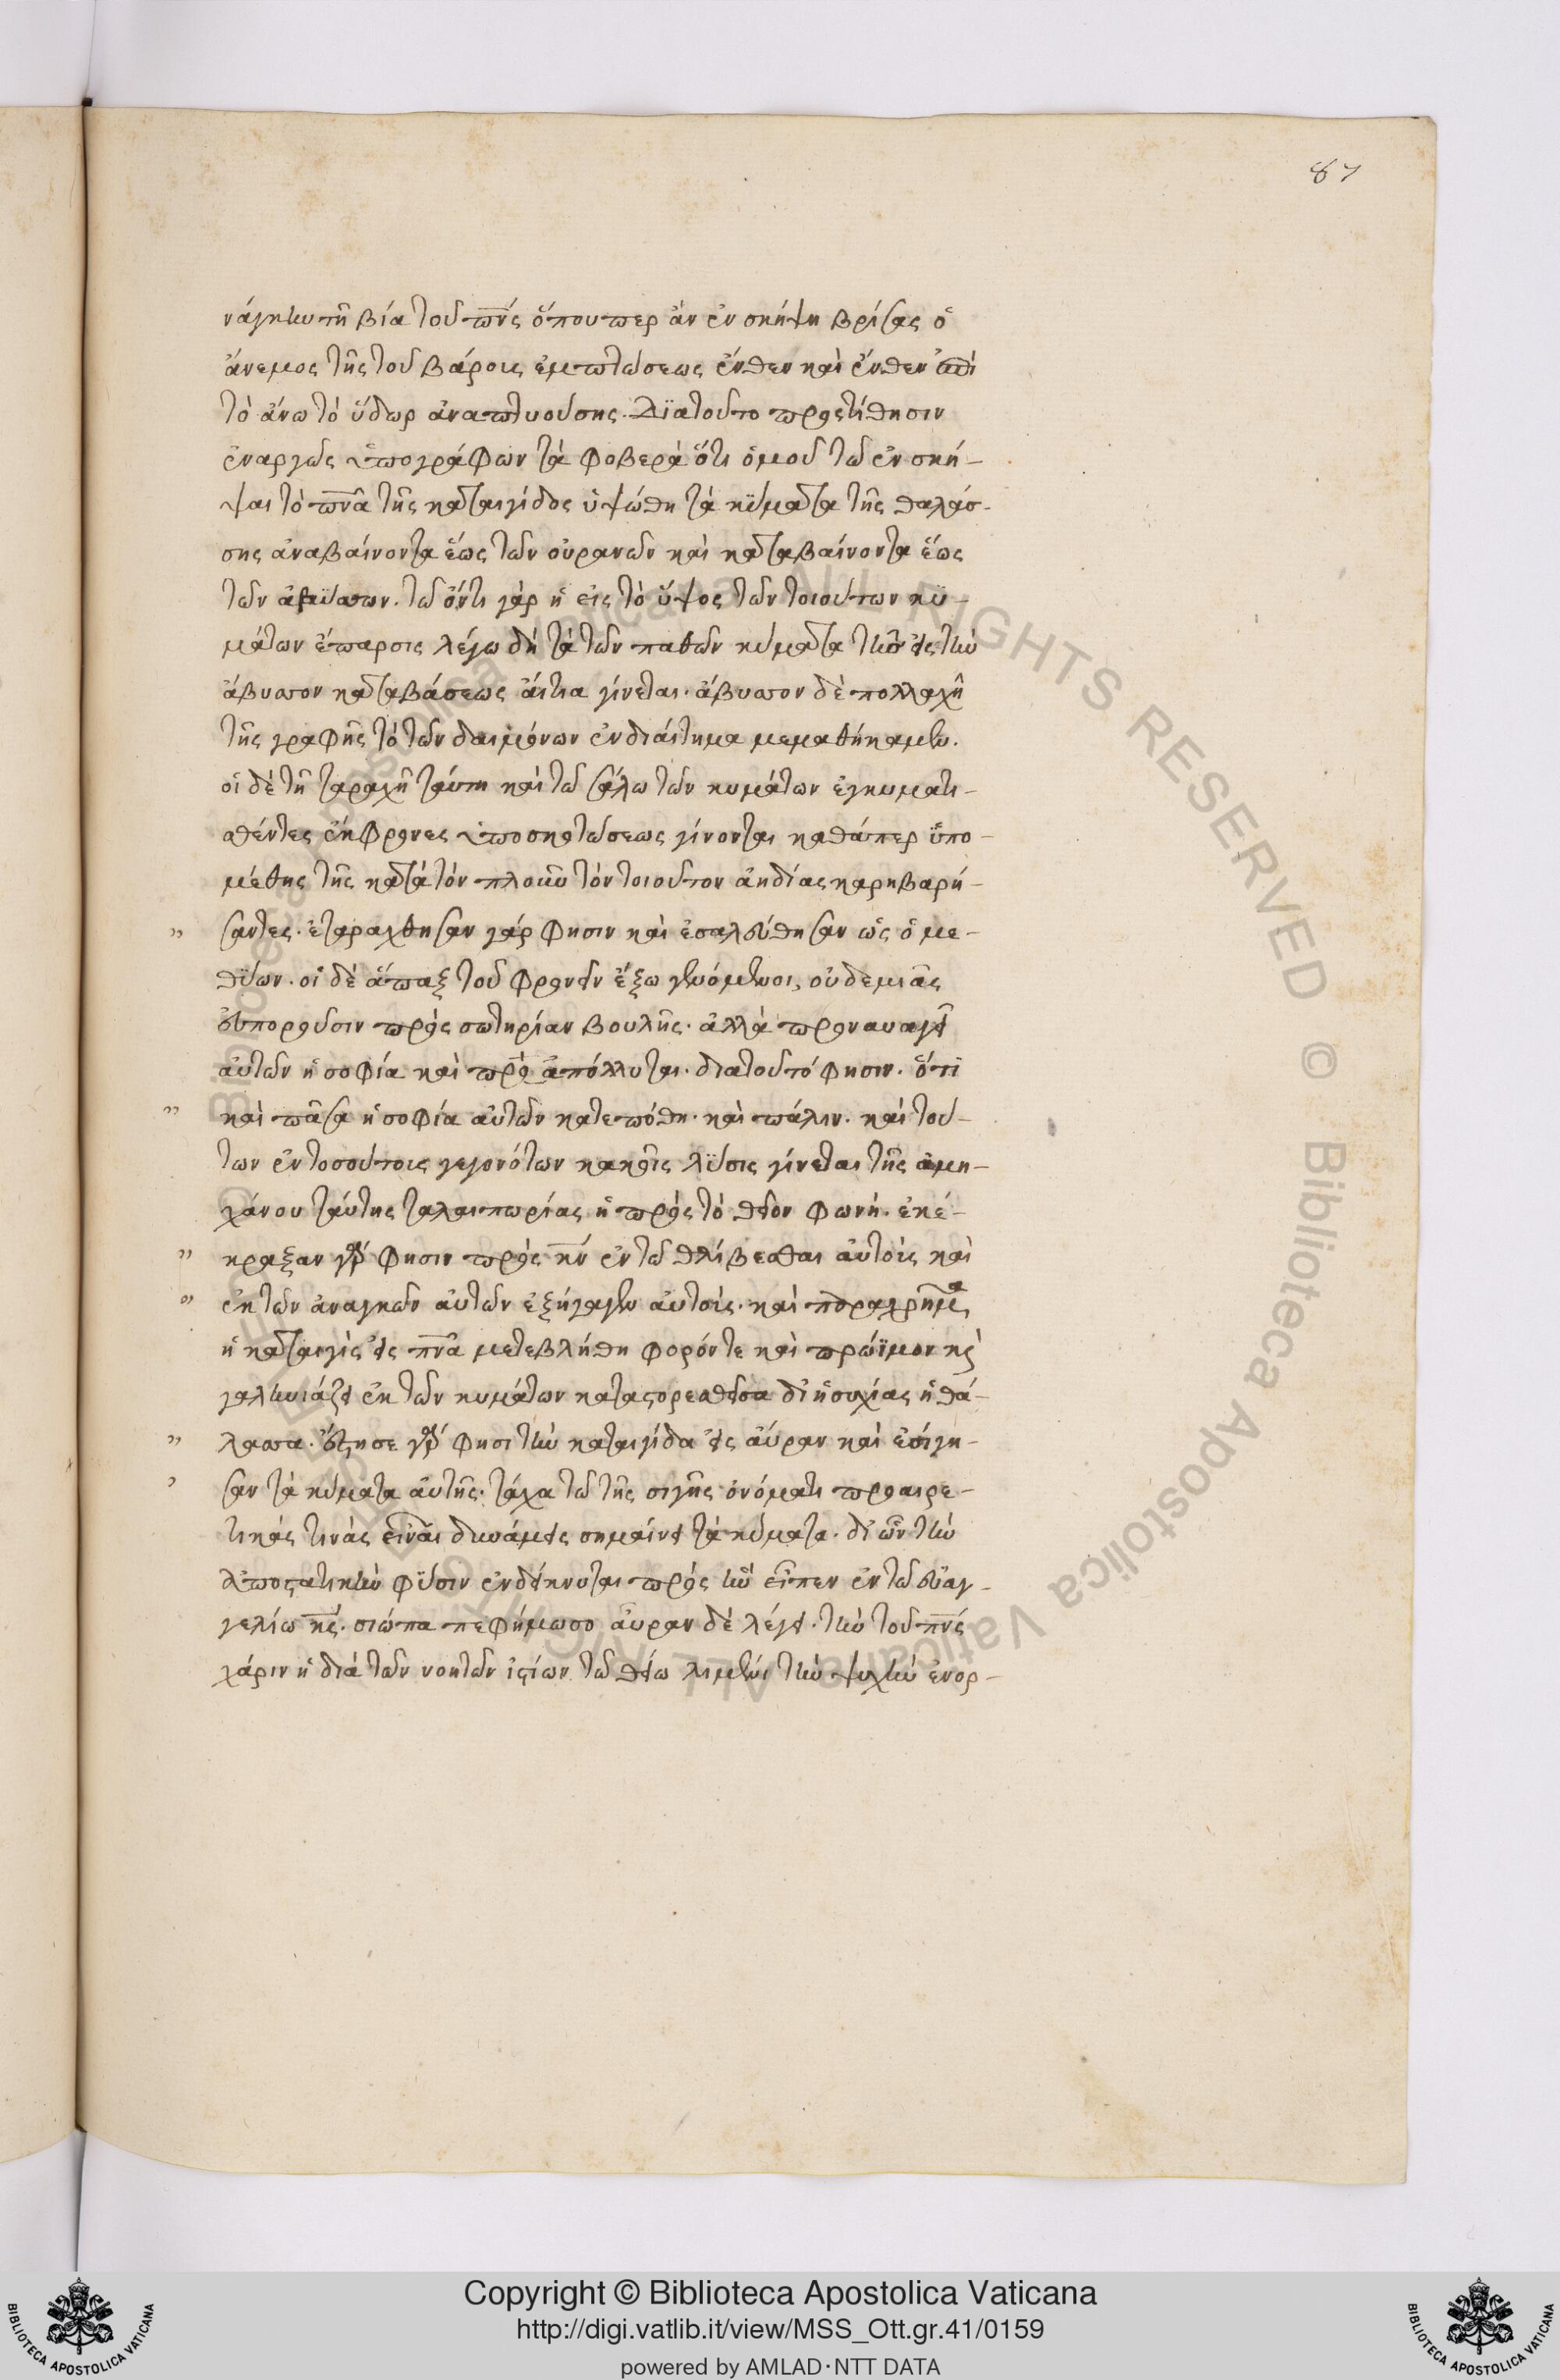 87
νάγκην τῆ βία τοῦ πνς ὅπουπερ ἀν ἐν σκήψη βρίσας ὁ
ἄνεμος τῆς τοῦ βάρους ἐμπτώσεως ἔνθεν καὶ ἔνθεν ἐπὶ
τὸ ἄνω τὸ ὕδωρ ἀναπτυούσης. Διατοῦτο προστίθησιν
ἐναργῶς ὑπογράφων τὰ φοβερὰ ὅτι ὁμοῦ τῶ ἐν σκή-
ψαι τὸ πνα τῆς καταιγίδος ὑψώθη τὰ κύματα τῆς θαλάσ-
σης ἀναβαίνοντα ἕως τῶν οὐρανῶν καὶ καταβαίνοντα ἕως
τῶν ἀβύσσων. τῶ ὄντι γὰρ ἡ εἰς τὸ ὕψος τῶν τοιούτων κυ-
μάτων ἔπαρσις λέγω δὴ τὰ τῶν παθῶν κύματα τῆς εἰς τὴν
ἄβυσσον καταβάσεως ἄιτια γίνεται. ἄβυσσον δὲ πολλαχῆ
τῆς γραφῆς τὸ τῶν δαιμόνων ἐνδιάιτημα μεμαθήκαμεν.
οἱ δὲ τῆ ταραχῆ ταύτη καὶ τῶ σάλω τῶν κυμάτων ἐγκυματι-
σθέντες ἔκφρονες ὑποσκοτώσεως γίνονται καθάπερ ὑπο-
μέθης τῆς κατὰ τὸν πλοῦν τὸν τοιοῦτον ἀηδίας καρηβαρή-
" σαντες. ἐταράχθησαν γάρ φησιν καὶ ἐσαλεύθησαν ὡς ὁ με-
θύων. οἱ δὲ ἅπαξ τοῦ φρονεῖν ἔξω γενόμενοι, οὐδεμιᾶς
ἐυποροῦσιν πρὸς σωτηρίαν βουλῆς. ἀλλὰ προναυαγεῖ
ἀυτῶν ἡ σοφία καὶ προαπόλλυται. διατοῦτό φησιν. ὅτι
" καὶ πᾶσα ἡ σοφία ἀυτῶν κατεπόθη. καὶ πάλιν. καὶ τού-
των ἐν τοσούτοις γεγονότων κακοῖς λύσις γίνεται τῆς ἀμη-
χάνου ταύτης ταλαιπωρίας ἡ πρὸς τὸ θεῖον φωνή. ἐκέ-
" κραξαν γάρ φησιν πρὸς κν ἐν τῶ θλίβεσθαι ἀυτοὺς καὶ
" ἐκ τῶν ἀναγκῶν ἀυτῶν ἐξήγαγεν ἀυτούς. καὶ παραχρῆμα
ἡ καταιγὶς εἰς πνα μετεβλήθη φορόν τε καὶ πρώϊμον καὶ
γαληνιάζει ἐκ τῶν κυμάτων καταστορεσθεῖσα δι ἡσυχίας ἡ θά-
" λασσα. ἔστησε γάρ φησι τὴν καταιγίδα εἰς ἄυραν καὶ ἐσίγη-
" σαν τὰ κύματα ἀυτῆς. τάχα τῶ τῆς σιγῆς ὀνόματι προαιρε-
τικάς τινὰς εἶναι δυνάμεις σημαίνει τὰ κύματα. δι ὧν τὴν
ἀποστατικὴν φύσιν ἐνδείκνυται πρὸς ἣν εἶπεν ἐν τῶ ἐυαγ-
γελίω κς. σιώπα πεφήμωσο ἄυραν δὲ λέγει. τὴν τοῦ πνς
χάριν ἡ διὰ τῶν νοητῶν ἱστίων τῶ θείω λιμένι τὴν ψυχὴν ἐνορ-
Copyright © Biblioteca Apostolica Vaticana
http://digi.vatlib.it/view/MSS_Ott.gr.41/0159
powered by AMLAD·NTT DATA
BIBLIOTECA APOSTOLICA VATICANA
BIBLIOTECA APOSTOLICA VATICANA